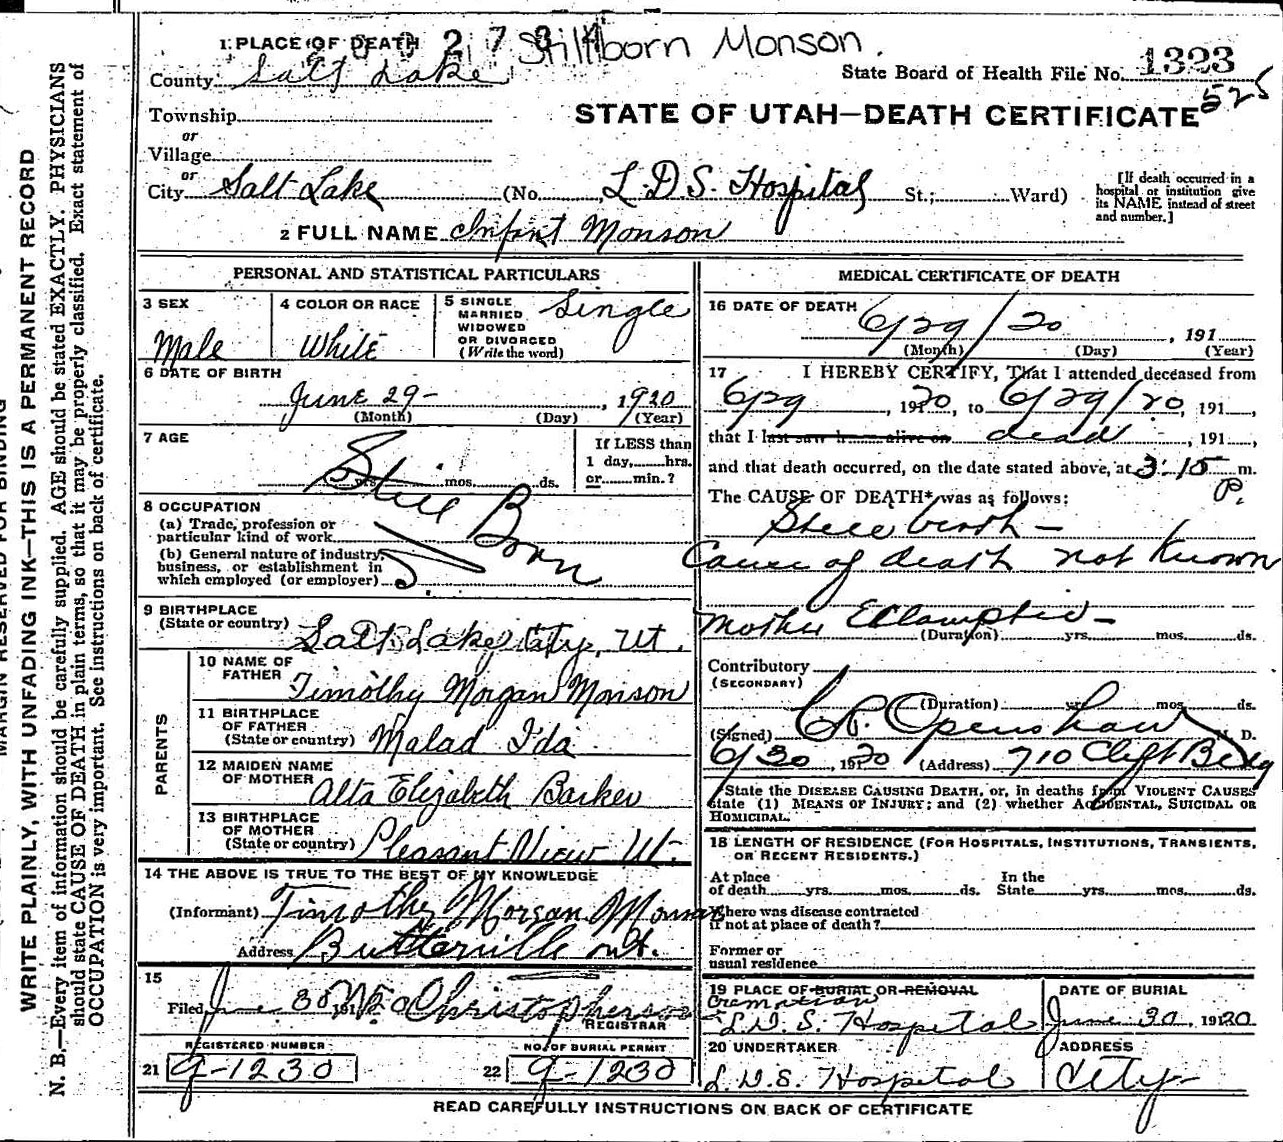 Stillborn Monson.
1 PLACE OF DEATH
County Salt Lake
State Board of Health File No. 1323
525
Township
STATE OF UTAH—DEATH CERTIFICATE
or
Village
or
City Salt Lake (No. L.D.S. Hospital St.; Ward)
[If death occurred in a
hospital or institution give
its NAME instead of street
and number.]
2 FULL NAME Infant Monson
PERSONAL AND STATISTICAL PARTICULARS
3 SEX
Male
4 COLOR OR RACE
White
5 SINGLE
MARRIED
WIDOWED
OR DIVORCED
(Write the word)
Single
6 DATE OF BIRTH
June 29- , 1920
(Month) (Day) (Year)
7 AGE
yrs. mos. ds.
If LESS than
1 day, hrs.
or min.?
Still Born
8 OCCUPATION
(a) Trade, profession or
particular kind of work
(b) General nature of industry,
business, or establishment in
which employed (or employer)
9 BIRTHPLACE
(State or country)
Salt Lake City, Ut.
PARENTS
10 NAME OF
FATHER
Timothy Morgan Monson
11 BIRTHPLACE
OF FATHER
(State or country)
Malad Ida
12 MAIDEN NAME
OF MOTHER
Alta Elizabeth Barker
13 BIRTHPLACE
OF MOTHER
(State or country)
Pleasant View Ut.
14 THE ABOVE IS TRUE TO THE BEST OF MY KNOWLEDGE
(Informant) Timothy Morgan Monson
Address
15
Filed June 30 Christopherson
REGISTRAR
REGISTERED NUMBER
21 g-1230
NO. OF BURIAL PERMIT
22 g-1230
MEDICAL CERTIFICATE OF DEATH
16 DATE OF DEATH
6/29/20 , 191
(Month) (Day) (Year)
17 I HEREBY CERTIFY, That I attended deceased from
6/29 , 1920, to 6/29/20, 191 ,
that I last saw h alive on dead , 191 ,
and that death occurred, on the date stated above, at 3:15 P. m.
The CAUSE OF DEATH* was as follows:
Still birth—
Cause of death not Known
Mother Eclamptic—
(Duration) yrs. mos. ds.
Contributory
(SECONDARY)
(Duration) yrs. mos. ds.
(Signed) Openshaw M. D.
6/30, 1920 (Address) 710 Clift Bldg
*State the DISEASE CAUSING DEATH, or, in deaths from VIOLENT CAUSES
state (1) MEANS OF INJURY; and (2) whether ACCIDENTAL, SUICIDAL OR
HOMICIDAL.
18 LENGTH OF RESIDENCE (FOR HOSPITALS, INSTITUTIONS, TRANSIENTS,
OR RECENT RESIDENTS.)
At place
of death yrs. mos. ds.
In the
State yrs. mos. ds.
Where was disease contracted
if not at place of death?
Former or
usual residence
19 PLACE OF BURIAL OR REMOVAL
Cremation
L.D.S. Hospital
DATE OF BURIAL
June 30, 1920
20 UNDERTAKER
L.D.S. Hospital
ADDRESS
City
READ CAREFULLY INSTRUCTIONS ON BACK OF CERTIFICATE
MARGIN RESERVED FOR BINDING
WRITE PLAINLY, WITH UNFADING INK—THIS IS A PERMANENT RECORD
N. B.—Every item of information should be carefully supplied. AGE should be stated EXACTLY. PHYSICIANS
should state CAUSE OF DEATH in plain terms, so that it may be properly classified. Exact statement of
OCCUPATION is very important. See instructions on back of certificate.